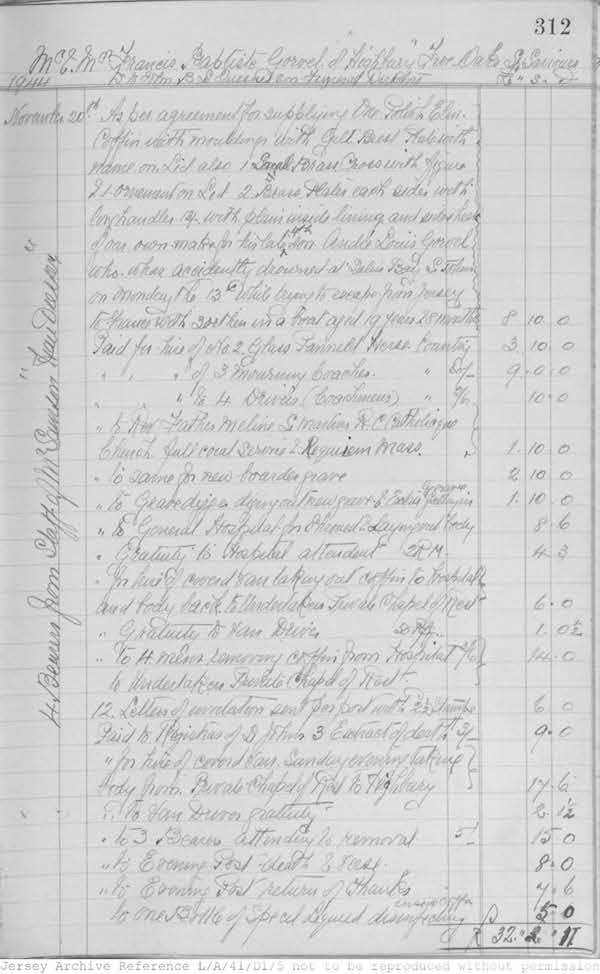 312
Mr & Mrs Francis Baptiste Gorvel of "Highbury" Five Oaks St Saviours
1944 £ s d
November 20th As per agreement for supplying One Polish Elm
Coffin with mouldings with Gilt Brest Plate with
name on Lid also 1 Small Brass Cross with figure
& 1 ornement on Lid 2 Brass Plates each sides with
handles with plain inside lining and
of our own make for his late son André Louis Gorvel
who whas accidently drowned at Bay St
on Monday the 13th While trying to escape from Jersey
to France with 3 other in a boat aged 19 years & 8 months 8 10 0
Paid for hire of No 2 Glass Pannell Herse Country 3 10 0
" " " of 3 Mourning Coaches " 60/- 9 0 0
" " to 4 Drivers (Coachmens) " 2/6 10 0
" to Rev Father Meline St Martins R.C.
Church full coral Service & Requiem Mass. 1 10 0
" to same for new boarder grave 2 10 0
" to Gravedigger digng out new grave & Extra 1 10 0
" to General Hospital for & Laying out body 8 6
" Gratuity to Hospital attendent 2 RM. 4 3
" for hire of coverd van taking out coffin to Hospital
and body back to Undertakers Private Chapel of Rest 6 0
" Gratuity to Van Driver 1 0½
" To 4 mens removing coffin from Hospital 3/6 14 0
to Undertakers Private Chapel of Rest
12 Letters of invitation sent per post with 2½ Stamps 6 0
Paid to Registrar of St Johns 3 Extract of death 3/- 9 0
" for hire of coverd van Sunday evening taking
body from Private Chapel of Rest to Highbury 17 6
" To Van Driver gratuity 2 1½
" to 3 Bearers attending to removal 5/- 15 0
" to Evening Post death 8 0
" to Evening Post return of Thanks 7 6
to One Bottle of Special Liquid disinfecting 5 0
£ 32 2 11
4 Bearers from Staff of Mr
Jersey Archive Reference L/A/41/D1/5 not to be reproduced without permission